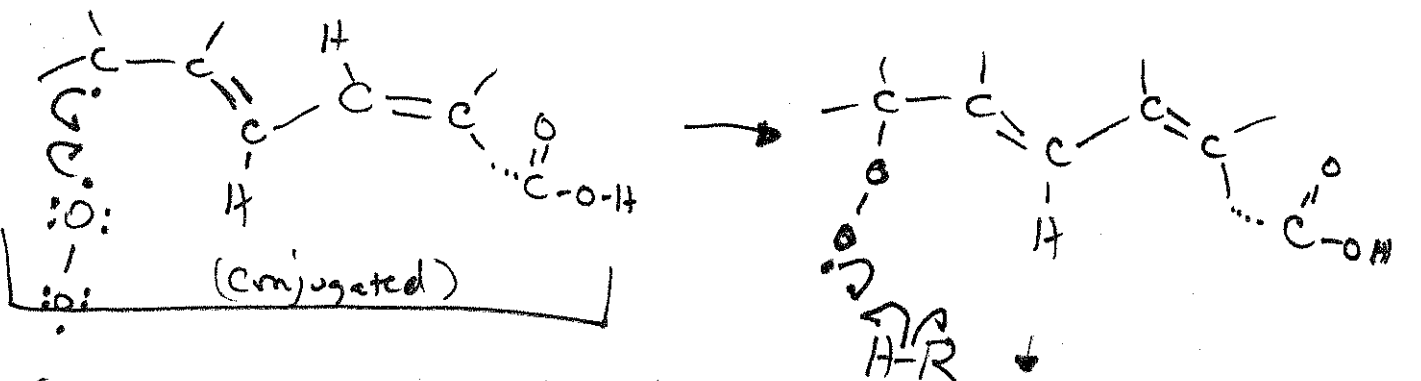 H
C C C = C
C O
H C-O-H
:O:
:O:
(Conjugated)
C C C
C C
O O
O H C-OH
H-R